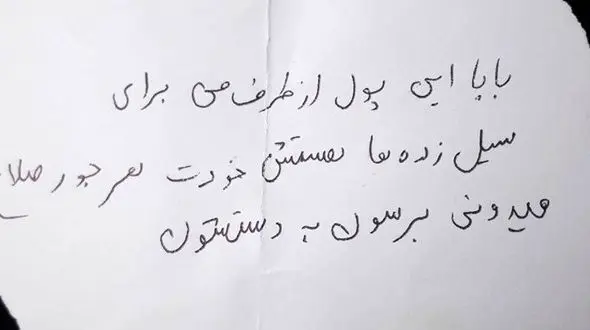 بابا این پول از طرف من برای
سیل زده ها هستش خودت هر جور صلاح
میدونی برسون به دستشون